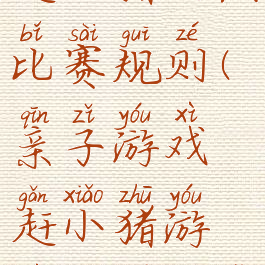 bǐ sài guī zé
比赛规则(
qīn zǐ yóu xì
亲子游戏
gǎn xiǎo zhū yóu
赶小猪游